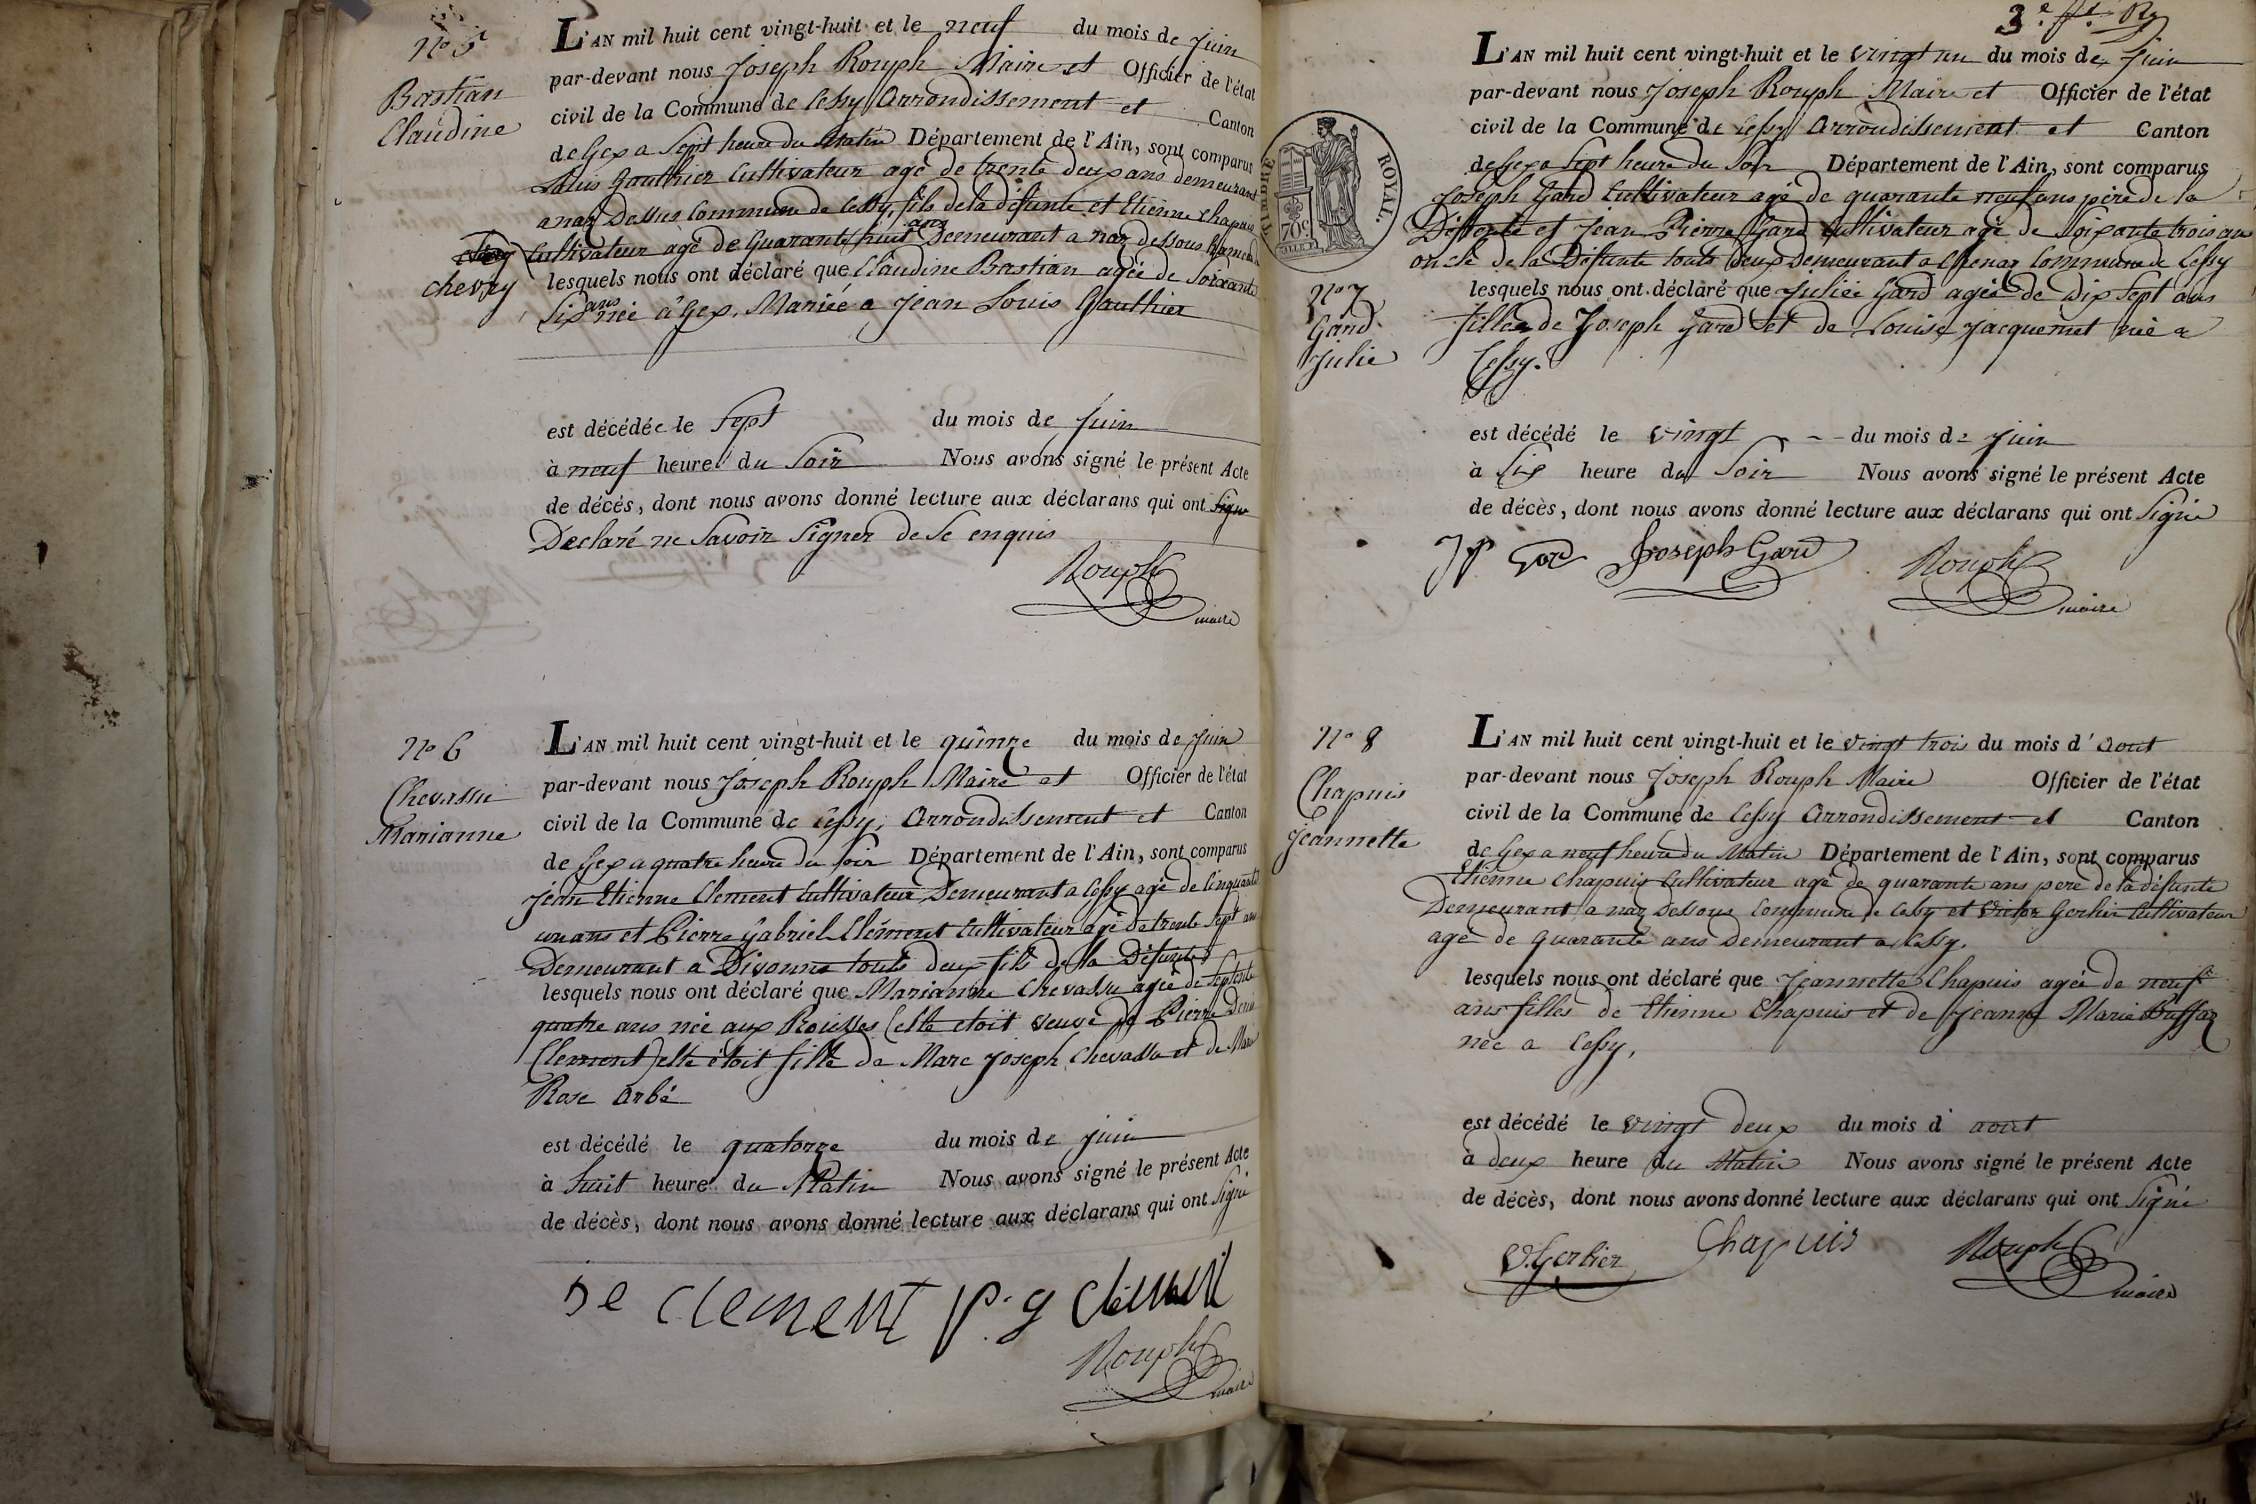 No 5
Bastian
Claudine
L'AN mil huit cent vingt-huit et le neuf du mois de juin
par-devant nous Joseph Rouph Maire et Officier de l'état
civil de la Commune de Cessy Arrondissement et Canton
de Gex a Sept heure du Matin Département de l'Ain, sont comparus
Louis Gauthier Cultivateur agé de trente deux ans demeurant
a naz Dessus Commune de Cessy, fils de la défunte et Etienne Chapuis
Cultivateur agé de Quarante huit ans Demeurant a naz dessous
chevry
lesquels nous ont déclaré que Claudine Bastian agée de Soixante
Six ans née à Gex, Mariée a Jean Louis Gauthier
est décédée le Sept du mois de Juin
à neuf heure du Soir Nous avons signé le présent Acte
de décès, dont nous avons donné lecture aux déclarans qui ont
Declaré ne Savoir Signer de Ce enquis
Rouph
maire
No 6
Chevassu
Marianne
L'AN mil huit cent vingt-huit et le quinze du mois de juin
par-devant nous Joseph Rouph Maire et Officier de l'état
civil de la Commune de Cessy, Arrondissement et Canton
de Gex a quatre heure du soir Département de l'Ain, sont comparus
Jean Etienne Clement Cultivateur Demeurant a Cessy agé de Cinquante
un ans et Pierre Gabriel Clément Cultivateur agé de trente Sept ans
Demeurant a Divonne touts deux fils de la Défunte
lesquels nous ont déclaré que Marianne Chevassu agée de Septente
quatre ans née aux Rousses (elle etoit veuve de Pierre Denis
Clement) elle étoit fille de Marc Joseph Chevassu et de Marie
Rose Arbé
est décédé le quatorze du mois de juin
à huit heure du Matin Nous avons signé le présent Acte
de décès, dont nous avons donné lecture aux déclarans qui ont Signé
J e Clement p. g Clément
Rouph
maire
3e
TIMBRE ROYAL.
70c
L'AN mil huit cent vingt-huit et le vingt un du mois de juin
par-devant nous Joseph Rouph Maire et Officier de l'état
civil de la Commune de Cessy Arrondissement et Canton
de Gex a Sept heure du Soir Département de l'Ain, sont comparus
Joseph Gard Cultivateur agé de quarante neuf ans père de la
Deffunte et Jean Pierre Gard Cultivateur agé de Soixante trois ans
oncle de la Défunte touts deux Demeurant a Commune de Cessy
No 7
Gard
Julie
lesquels nous ont déclaré que Julie Gard agée de Dix Sept ans
filles de Joseph Gard et de Louise Jacquemet née a
Cessy.
est décédé le vingt du mois de juin
à Six heure du Soir Nous avons signé le présent Acte
de décès, dont nous avons donné lecture aux déclarans qui ont Signé
J P Gard Joseph Gard Rouph
maire
No 8
Chapuis
Jeannette
L'AN mil huit cent vingt-huit et le vingt trois du mois d'aout
par-devant nous Joseph Rouph Maire Officier de l'état
civil de la Commune de Cessy Arrondissement et Canton
de Gex a neuf heure du Matin Département de l'Ain, sont comparus
Etienne Chapuis Cultivateur agé de quarante ans pere de la défunte
Demeurant a naz Dessous Commune de Cessy et Victor Gerbier Cultivateur
agé de quarante ans Demeurant a Cessy.
lesquels nous ont déclaré que Jeannette Chapuis agée de neuf
ans filles de Etienne Chapuis et de Jeanne Marie Buffaz
née a Cessy,
est décédé le vingt deux du mois d'aout
à deux heure du Matin Nous avons signé le présent Acte
de décès, dont nous avons donné lecture aux déclarans qui ont Signé
V. Gerbier Chapuis Rouph
maire